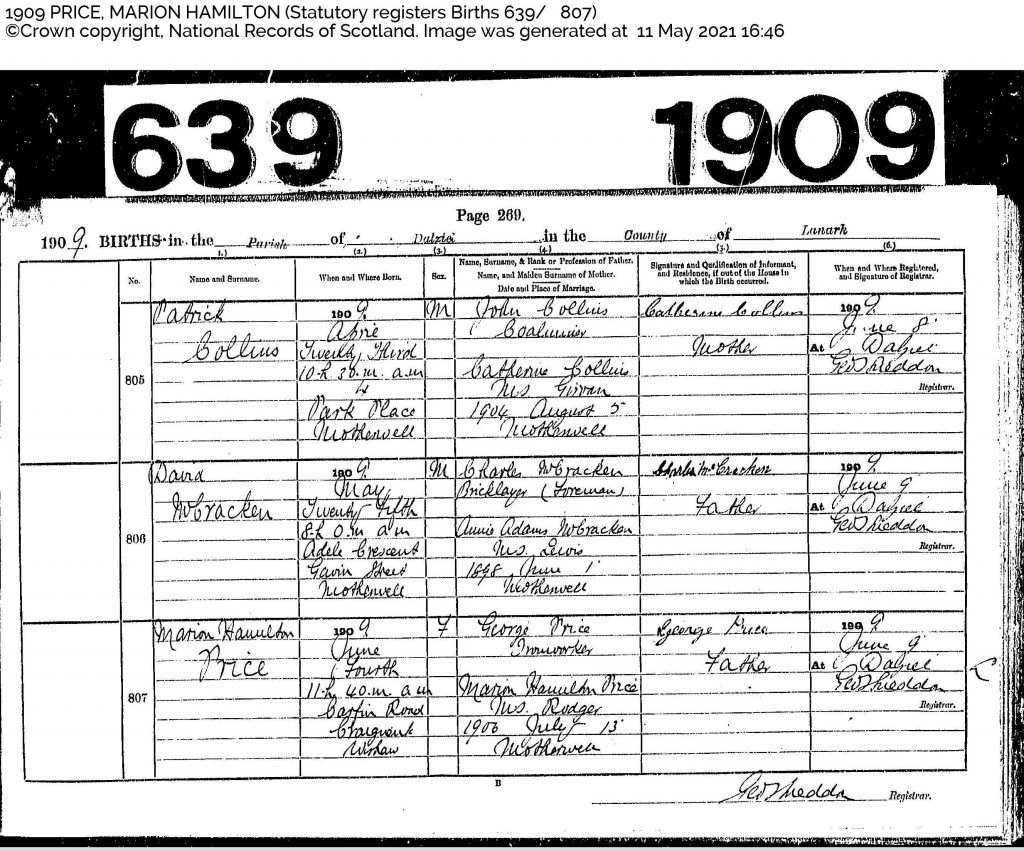 1909 PRICE, MARION HAMILTON (Statutory registers Births 639/ 807)
©Crown copyright, National Records of Scotland. Image was generated at 11 May 2021 16:46
639 1909
Page 269.
1909. BIRTHS in the Parish of Dalziel in the County of Lanark
(1.) (2.) (3.) (4.) (5.) (6.)
No. Name and Surname. When and Where Born. Sex. Name, Surname, & Rank or Profession of Father. Name, and Maiden Surname of Mother. Date and Place of Marriage. Signature and Qualification of Informant, and Residence, if out of the House in which the Birth occurred. When and Where Registered, and Signature of Registrar.
Patrick 1909 M John Collins Catherine Collins 1909
Collins April Coalminer June 8
Twenty Third Mother At Dalziel
805 10 h. 30 m. a m Catherine Collins Geo Sheddon
4 M.S. Girvan Registrar.
Park Place 1904 August 5
Motherwell Motherwell
David 1909 M Charles McCracken Charles McCracken 1909
McCracken May Bricklayer (Foreman) June 9
Twenty Fifth Father At Dalziel
806 8 h. 0 m. a m Annie Adams McCracken Geo Sheddon
Adele Crescent M.S. Lewis Registrar.
Gavin Street 1898 June 1
Motherwell Motherwell
Marion Hamilton 1909 F George Price George Price 1909
Price June Ironworker June 9
Fourth Father At Dalziel
807 11 h. 40 m. a m Marion Hamilton Price Geo Sheddon
Carfin Road M.S. Rodger Registrar.
Craigneuk 1906 July 13
Wishaw Motherwell
B
Geo Sheddon Registrar.